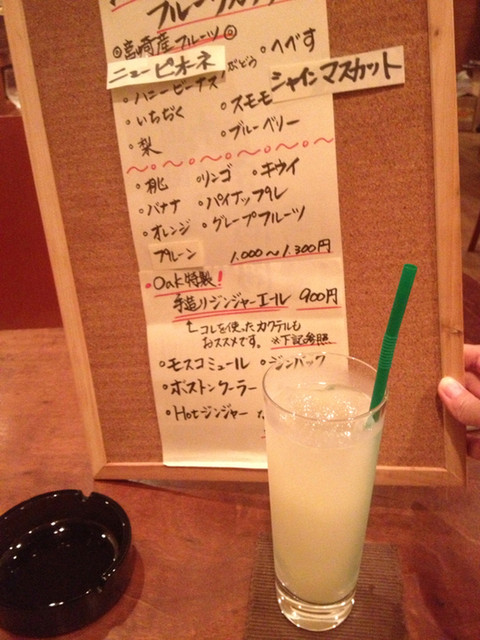 フルーツカクテル
◎宮崎産フルーツ◎
ニューピオーネ ぶどう 。へべす
・ハニービーナス シャインマスカット
・いちぢく 。スモモ
・梨 。ブルーベリー
〜。〜。〜。〜。〜。〜
。桃 。リンゴ 。キウイ
。バナナ 。パイナップル
。オレンジ 。グレープフルーツ
プルーン 1.000〜1.300円
・Oak特製!
手造りジンジャーエール 900円
↳コレを使ったカクテルも
おススメです。 ※下記参照
・モスコミュール 。ジンバック
・ボストンクーラー
・Hotジンジャー